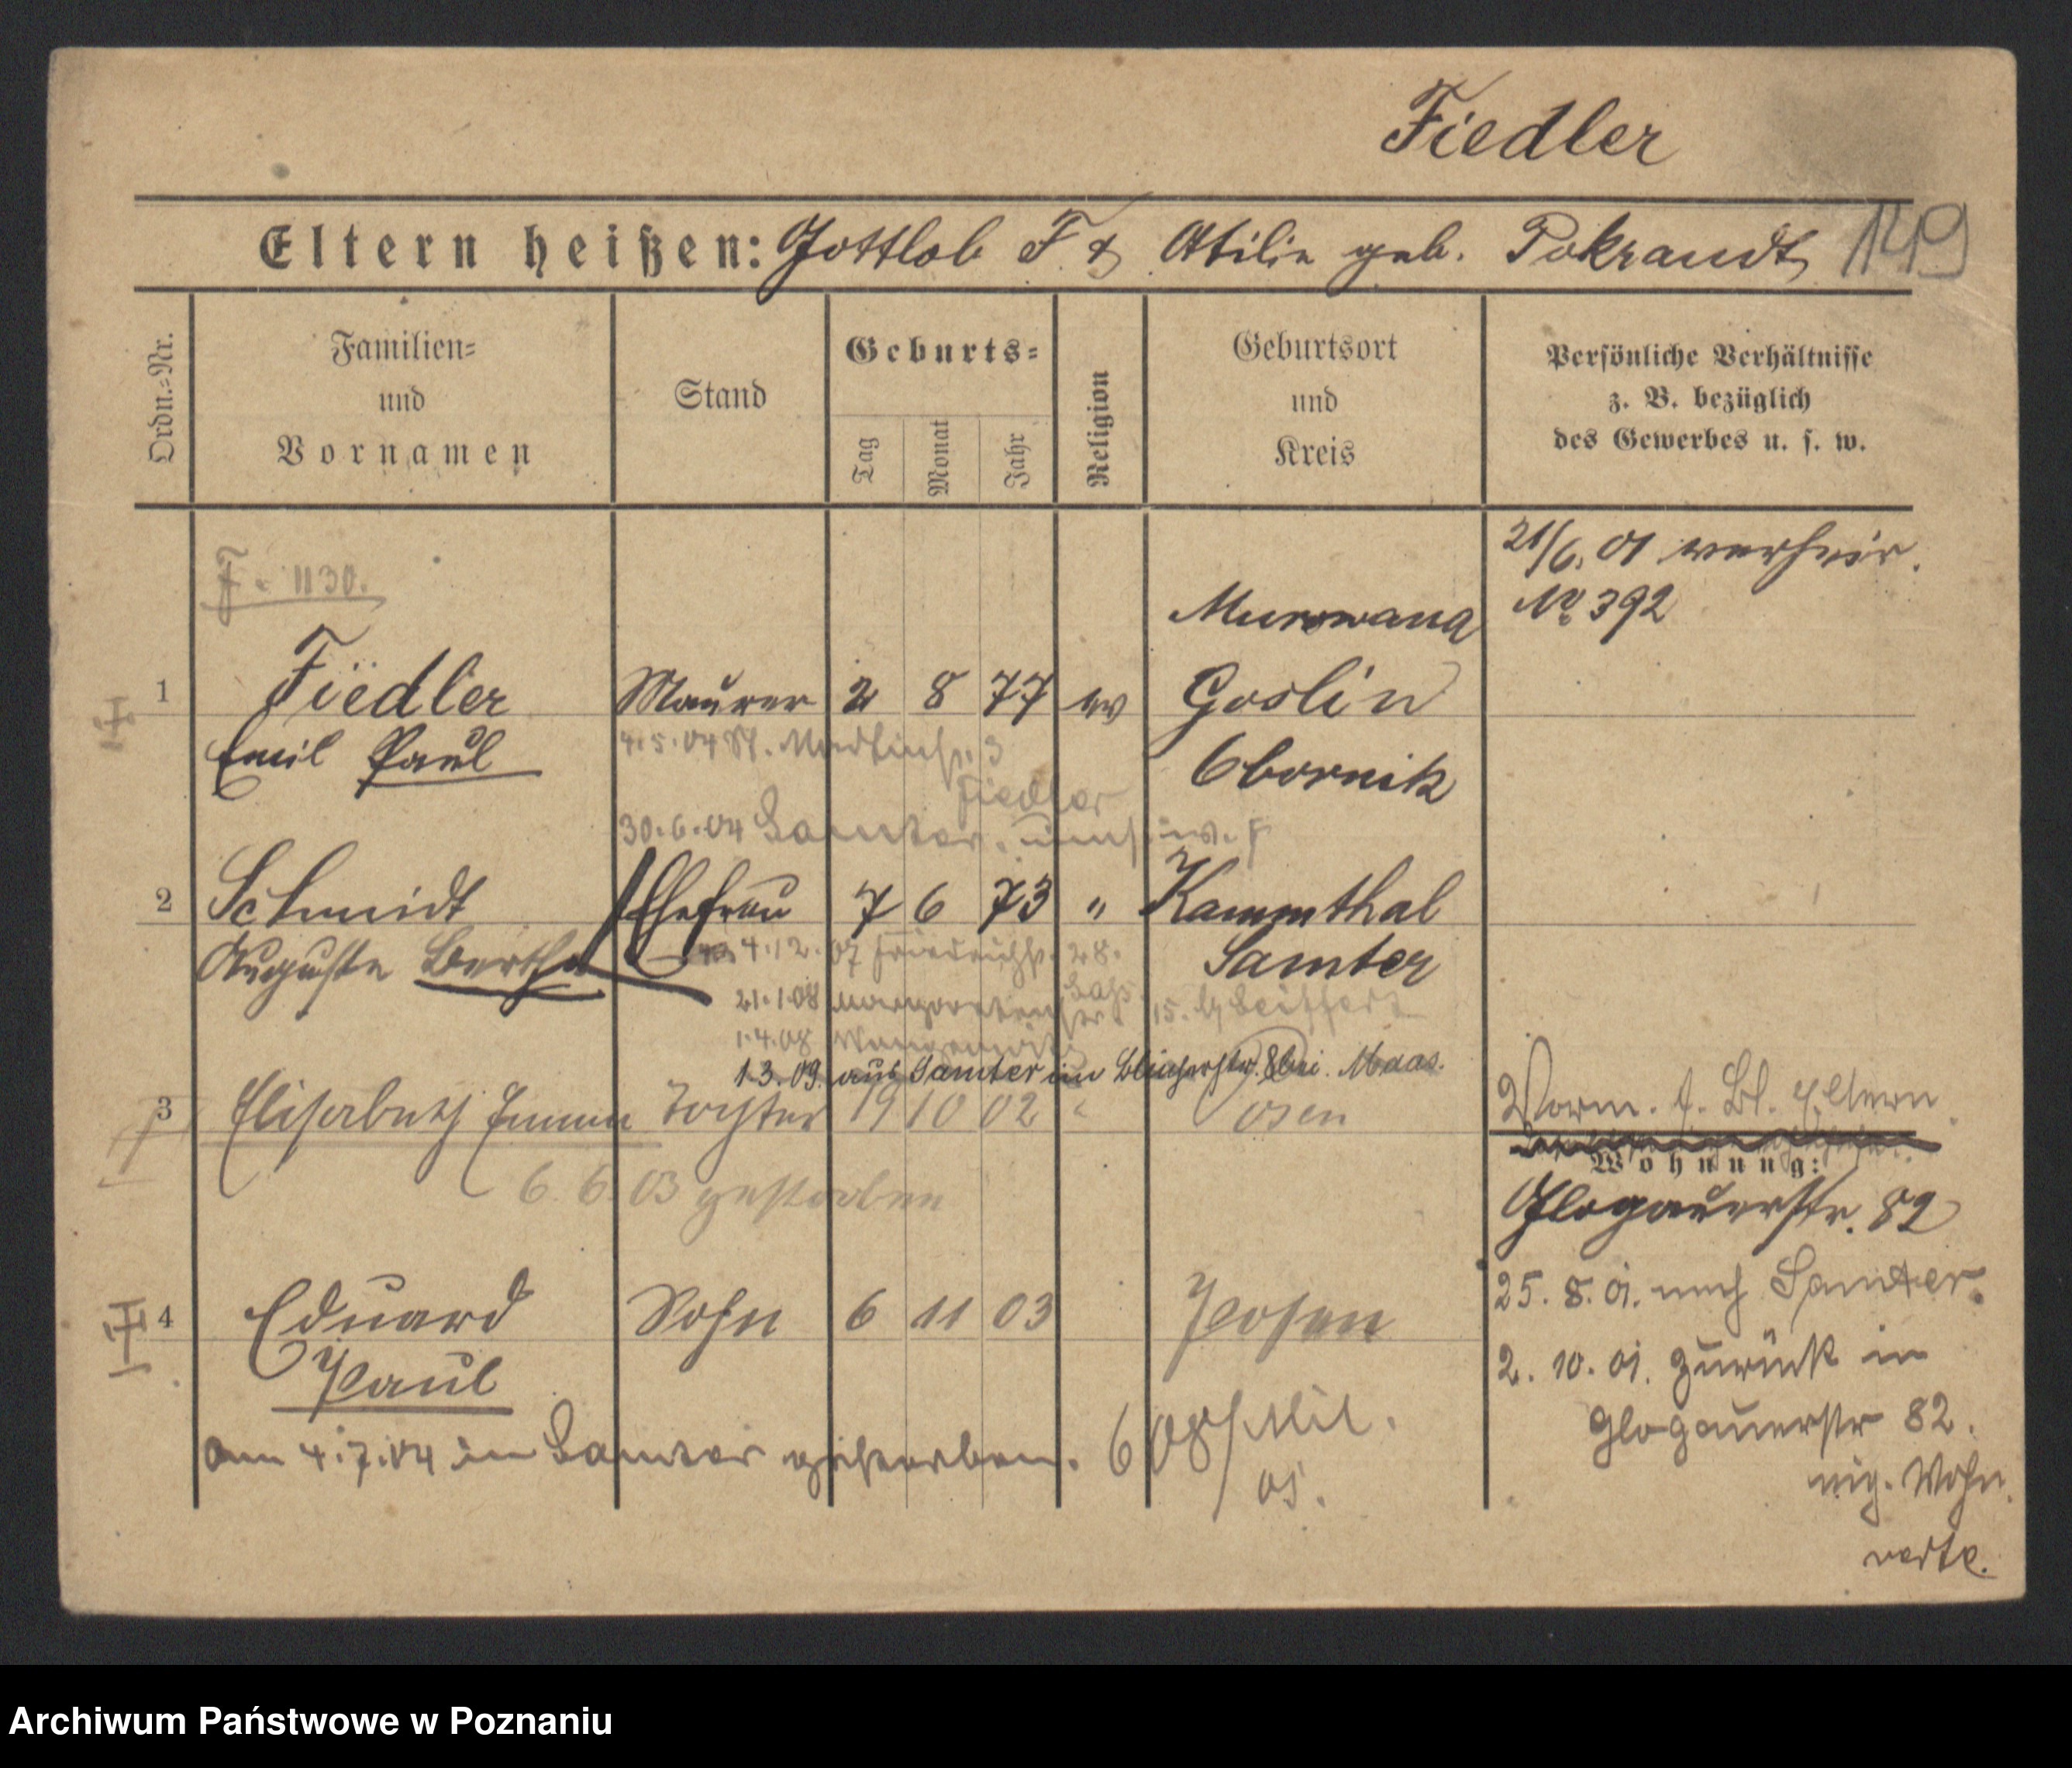 Fiedler
Eltern heißen: Gottlob F. & Otilie geb. Pokrandt 149
Ordn.-Nr.
Familien-
und
Vornamen
Stand
Geburts-
Tag
Monat
Jahr
Religion
Geburtsort
und
Kreis
Persönliche Verhältnisse
z. B. bezüglich
des Gewerbes u. s. w.
21/6. 01 verheir.
No 392
F. 1130.
Murowana
1 Fiedler Maurer 2 8 77 ev Goslin
Emil Paul
4.5.04 St. Martinstr. 3
Obornik
Fiedler
30.6.04 Samter.
2 Schmidt Ehefrau 7 6 73 " Kammthal
Auguste Bertha
4.12.07 Friedrichstr. 28.
Samter
21.1.08 Margareten 15. b/ Seiffert
1.4.08
1.3.09. aus Samter in bei Maas.
3 Elisabeth Emma Tochter 19 10 02 " Posen
6. 6. 03 gestorben
Vorm. f. Bl. Eltern
Wohnung:
Glogauerstr. 82
25. 8. 01. nach Samter.
4 Eduard Sohn 6 11 03 Posen
Paul
2. 10. 01. zurück in
Glogauerstr 82.
am 4.7.04 in Samter gestorben. 6 Mil.
05.
Wohn.
verte.
Archiwum Państwowe w Poznaniu